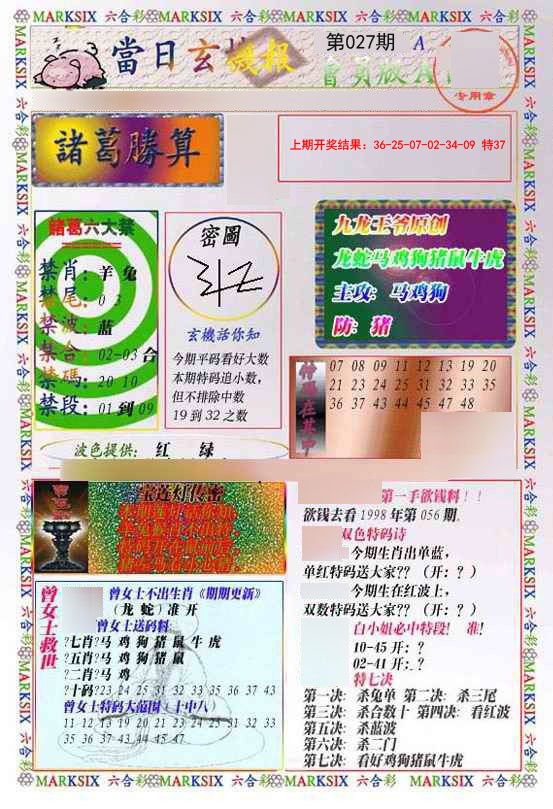 MARKSIX 六合彩 MARKSIX 六合彩 MARKSIX 六合彩 MARKSIX 六合彩 MARKSIX 六合彩
當日玄機報
第027期
A
會員版A
专用章
諸葛勝算
上期开奖结果：36-25-07-02-34-09 特37
諸葛六大禁
禁肖：羊 兔
禁尾：0 3
禁波：蓝
禁合：02-03 合
禁碼：20 10
禁段：01 到 09
密圖
玄機話你知
今期平码看好大数
本期特码追小数，
但不排除中数
19 到 32 之数
九龙王爷原创
龙蛇马鸡狗猪鼠牛虎
主攻：马鸡狗
防：猪
07 08 09 11 12 13 19 20
21 23 24 25 31 32 33 35
36 37 43 44 45 47 48
波色提供：红 绿
宝莲灯传密
第一手欲钱料！！
欲钱去看 1998 年第 056 期.
双色特码诗
今期生肖出单蓝，
单红特码送大家?? （开：？）
今期生肖在红波上，
双数特码送大家?? （开：？）
白小姐必中特段！ 准!
10-45 开：？
02-41 开：？
特七决
第一决：杀兔单 第二决：杀三尾
第三决：杀合数十 第四决：看红波
第五决：杀蓝波
第六决：杀二门
第七决：看好鸡狗猪鼠牛虎
曾女士救世
曾女士不出生肖《期期更新》
（龙 蛇）准 开
曾女士送码料
?七肖?马 鸡 狗 猪 鼠 牛 虎
?五肖?马 鸡 狗 猪 鼠
?二肖?马 鸡
?十码?23 24 25 31 32 33 35 36 37 43
曾女士特码大范围（十中八）
11 12 13 19 20 21 23 24 25 31 32 33
35 36 37 43 44 45 47
MARKSIX 六合彩 MARKSIX 六合彩 MARKSIX 六合彩 MARKSIX 六合彩 MARKSIX 六合彩